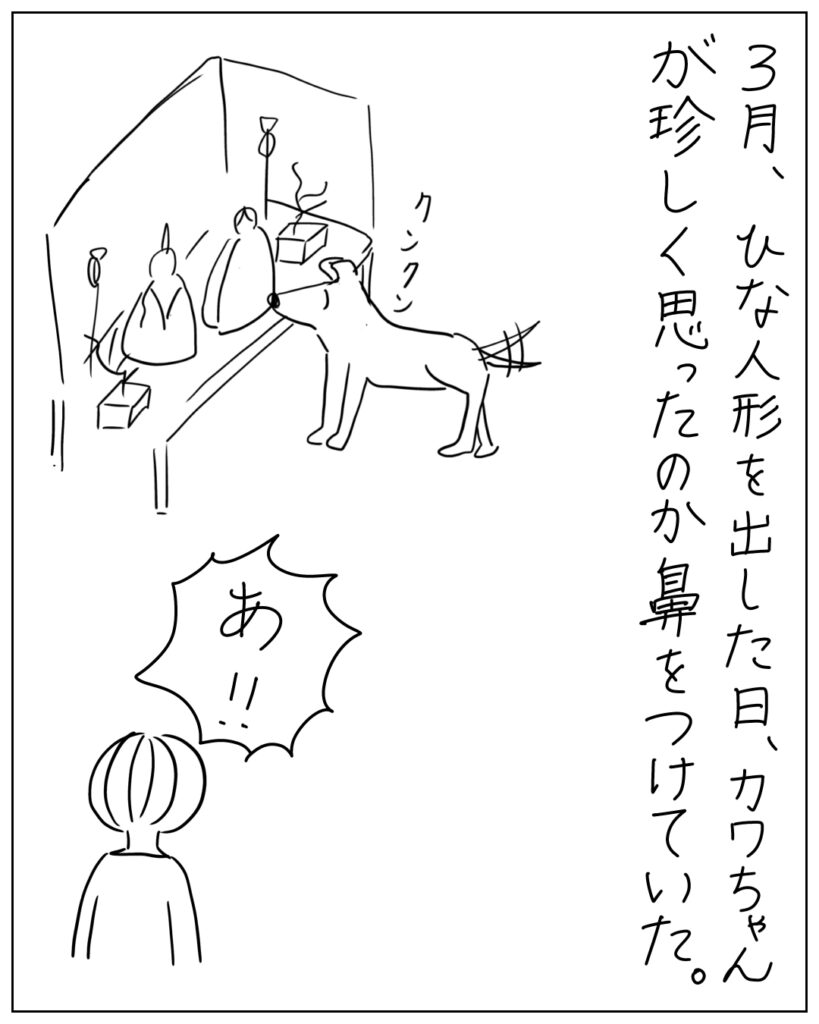 3月、ひな人形を出した日、カワちゃん
が珍しく思ったのか鼻をつけていた。
クンクン
あ!!